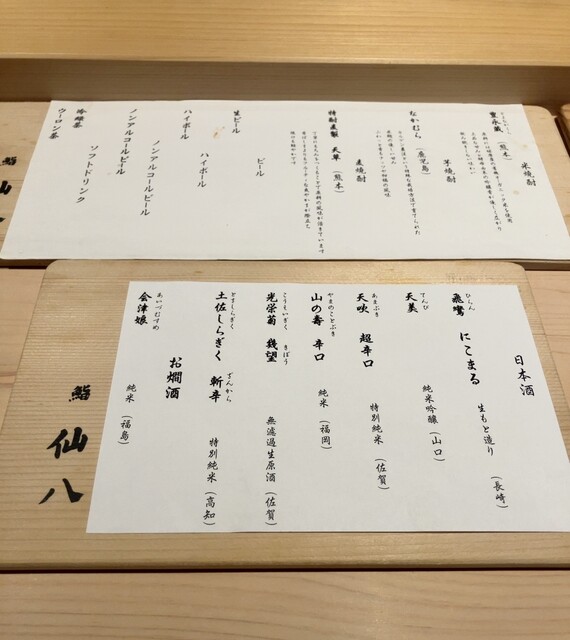 米焼酎
豊永蔵 (熊本)
芋焼酎
なかむら (鹿児島)
麦焼酎
特酎麦製 天草 (熊本)
ビール
生ビール
ハイボール
ハイボール
ノンアルコールビール
ノンアルコールビール
ソフトドリンク
冷緑茶
ウーロン茶
鮨 仙八
日本酒
ひらん
飛鸞 にこまる 生もと造り (長崎)
てんび
天美 純米吟醸 (山口)
あまぶき
天吹 超辛口 特別純米 (佐賀)
やまのことぶき
山の壽 辛口 純米 (福岡)
こうえいぎく きぼう
光栄菊 幾望 無濾過生原酒 (佐賀)
とさしらぎく ざんから
土佐しらぎく 斬辛 特別純米 (高知)
お燗酒
あいづむすめ
会津娘 純米 (福島)
鮨 仙八